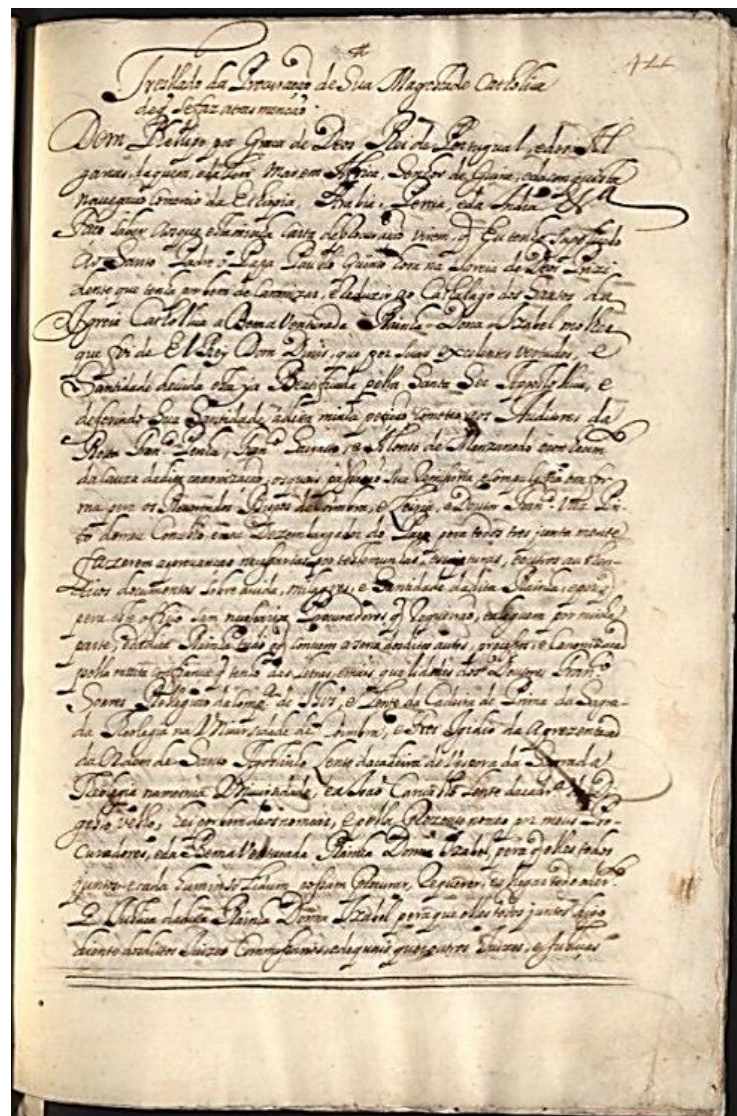 Trellado da Procuração de Sua Magestade Catholica
de q̃ se faz atras menção.
Dom Phelippe por Graça de Deos Rei de Portugual, e dos Al
garues, daquem, e dalem Mar em Africa, Senhor de Guine, e da comquista
navegação Comercio da Ethiopia, Arabia, Persia, e da India &ª
Faço saber aos que esta minha Carta de procuração virem, q̃ Eu tenho suplicado
Ao Santo Padre o Papa Paullo Quinto hora na Igreia de Deos Prezi
dente que tenha por bem de Canonizar, e reduzir ao Cathalago dos Santos da
Igreia Catholica a Bemaventurada Rainha Dona Izabel molher
que foi de El Rey Dom Dinis, que por suas excelentes vertudes, e
Santidade de vida esta ja Beatificada pella Santa See Appostollica, e
deferindo Sua Santidade a dita minha petição cometeo aos Auditores da
Rotta Fran.co Penha, Fran.co Sacrato, e Alonso de Manzanedo
da cauza da dita canonização, os quais passarão sua Remissoria, e Compulssoria em for
ma para os Reverendos Bispos de Coimbra, e Leiria, e Doutor Fran.co Vaz Pin
to do meu Conselho e meu Dezembargador do Paço, pera todos tres junta mente
fazerem as provanças necessarias, por testemunhas, escrituras, e outros authen
ticos documentos sobre a vida, milagres, e Santidade da dita Rainha, e por q̃
pera este effeito sam necessarios Procuradores q̃ requeirão, e aleguem por minha
parte, e da dita Rainha tudo o q̃ convem acerca dos ditos autos, processos, e Canonização
polla muita confiança q̃ tenho das letras, e mais qualidades dos Doutores Fran.co
Soares Religioso da Comp.ª de Jhus, e Lente da Cadeira de Prima da Sagra
da Theologia na Universidade de Coimbra, e Frei Igidio da Aprezentação
da Ordem de Santo Agostinho Lente da cadeira de Vespora da Sagrada
Theologia na mesma Universidade, e a João Carvalho Lente da cadr.ª
velho, hei por bem de os nomear, e polla prezente nomeo por meus Pro
curadores, e da Bemaventurada Rainha Donna Izabel, pera q̃ elles todos
juntos e cada hum in solidum possam procurar, requerer, e allegar todo o der.to
E Justiça da dita Rainha Donna Izabel pera que elles todos juntos digo
diante dos ditos Juizes Commissarios, e de quais quer outros Juizes, e Justiças